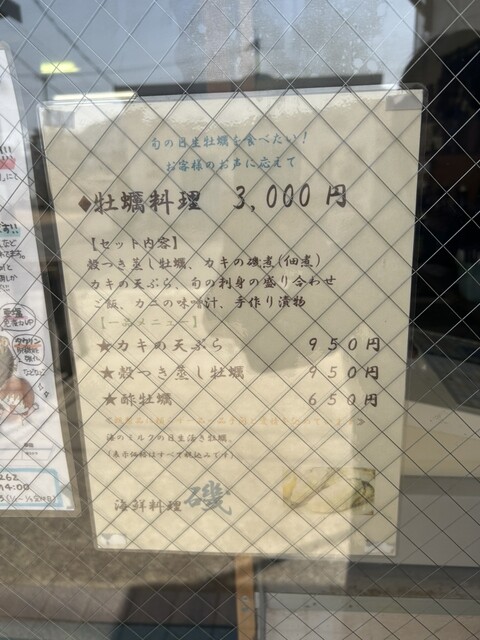 旬の日生牡蠣を食べたい!
お客様のお声に応えて
◆牡蠣料理 3,000円
【セット内容】
殻つき蒸し牡蠣、カキの磯煮(佃煮)
カキの天ぷら、旬の刺身の盛り合わせ
ご飯、カニの味噌汁、手作り漬物
【一品メニュー】
★カキの天ぷら 950円
★殻つき蒸し牡蠣 950円
★酢牡蠣 650円
海のミルクの日生活き牡蠣。
(表示価格はすべて税込みです)
海鮮料理 磯